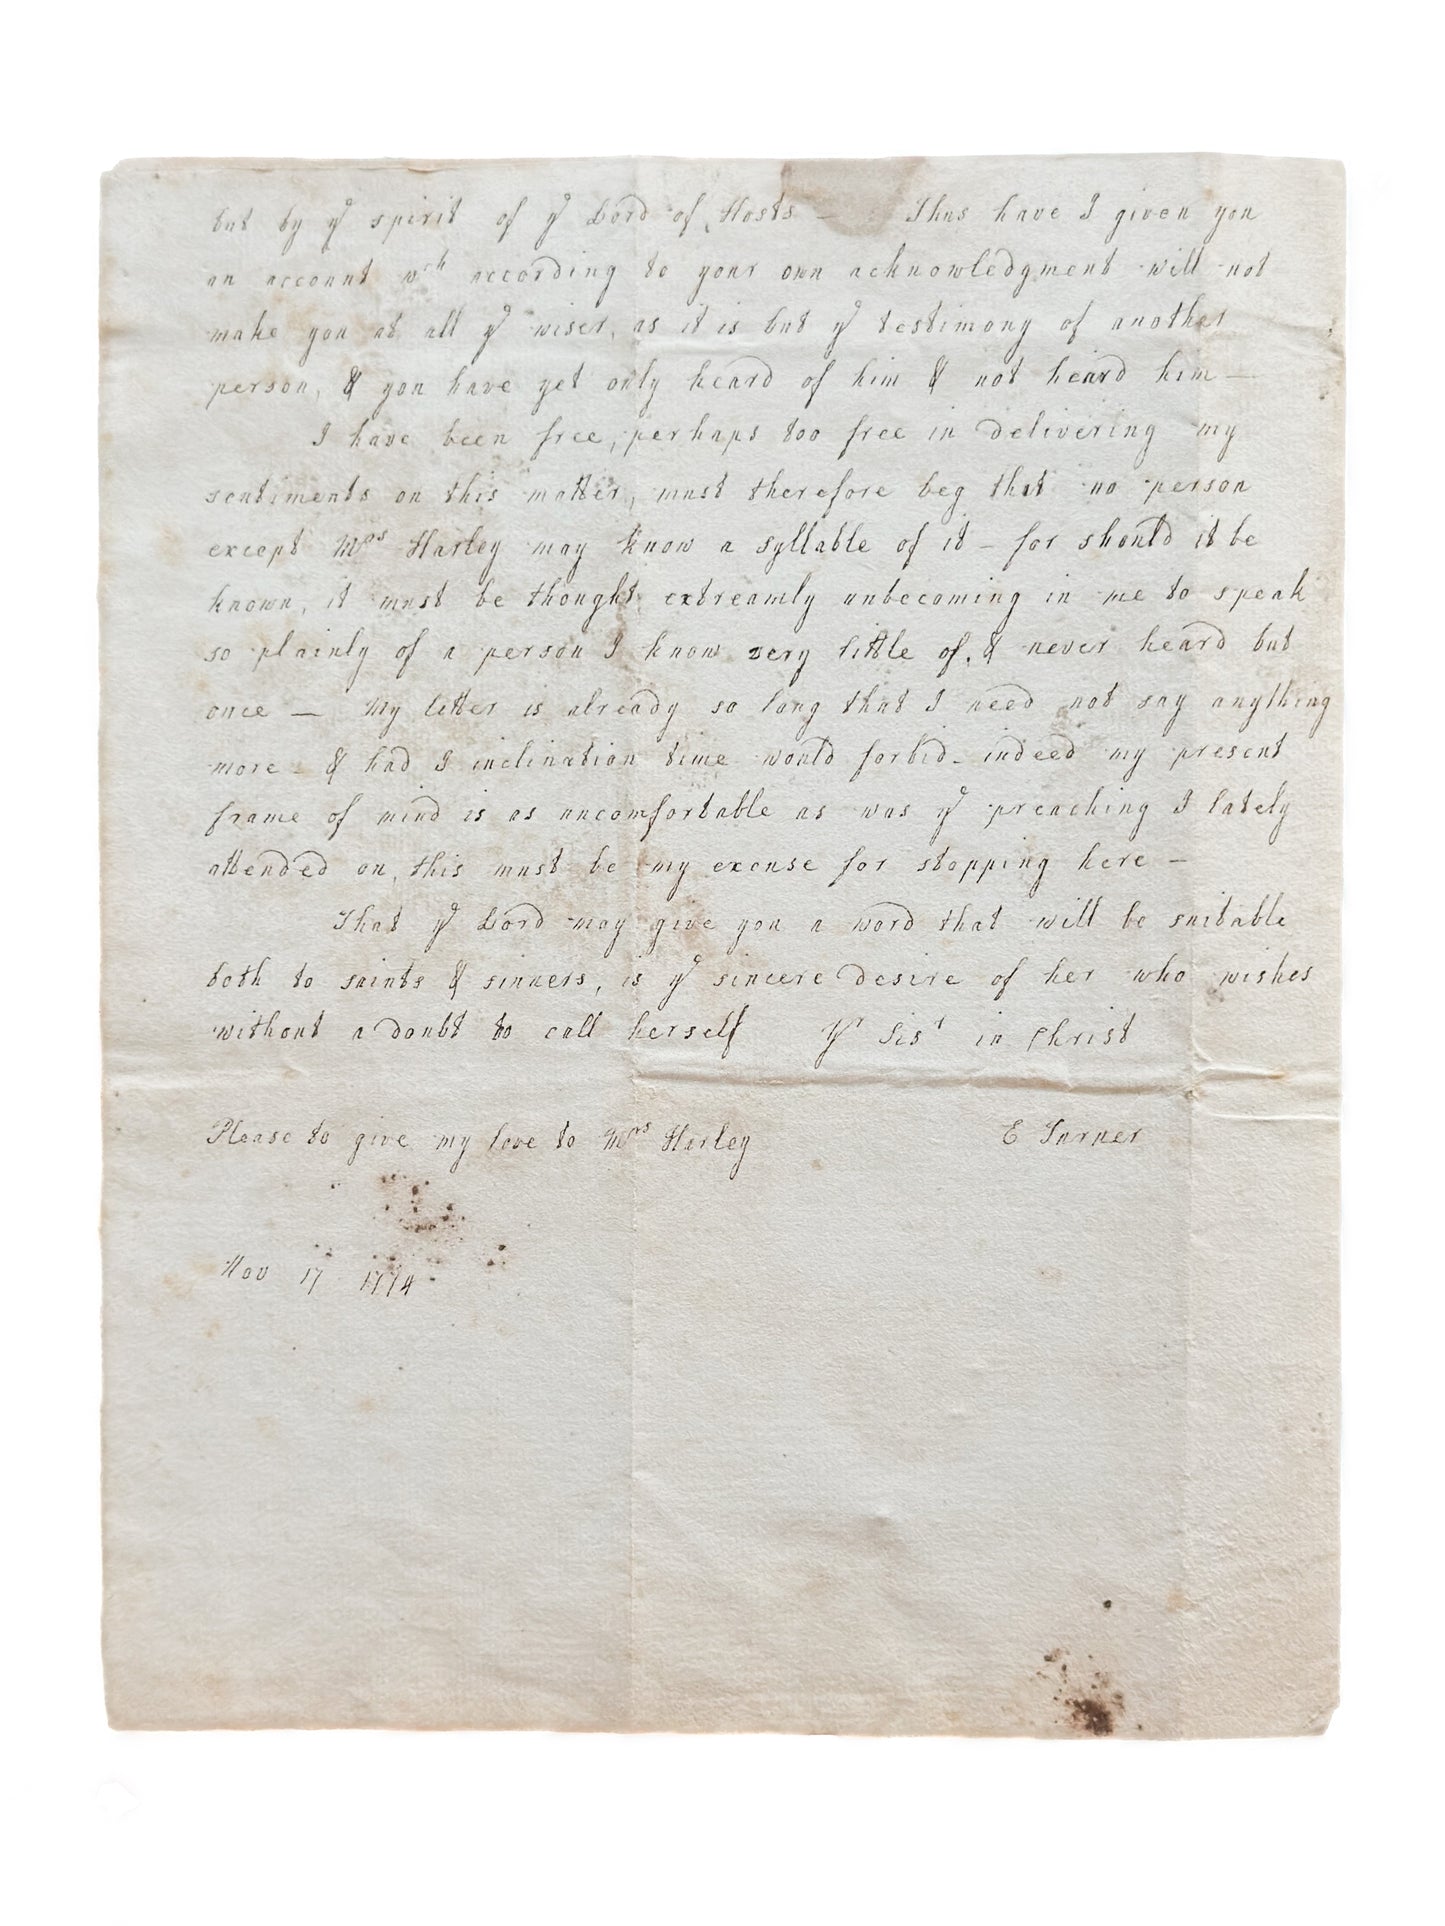 but by yᵉ spirit of yᵉ Lord of Hosts – Thus have I given you
an account wᶜʰ according to your own acknowledgment will not
make you at all yᵉ wiser, as it is but yᵉ testimony of another
person, & you have yet only heard of him & not heard him –
I have been free, perhaps too free in delivering my
sentiments on this matter, must therefore beg that no person
except Mʳˢ Harley may know a syllable of it – for should it be
known, it must be thought extreamly unbecoming in me to speak
so plainly of a person I know very little of, & never heard but
once – My letter is already so long that I need not say anything
more – & had I inclination time would forbid – indeed my present
frame of mind is as uncomfortable as was yᵉ preaching I lately
attended on, this must be my excuse for stopping here –
That yᵉ Lord may give you a word that will be suitable
both to saints & sinners, is yᵉ sincere desire of her who wishes
without a doubt to call herself Yʳ Sisᵗ in Christ
Please to give my love to Mʳˢ Harley E Turner
Nov 17 1774